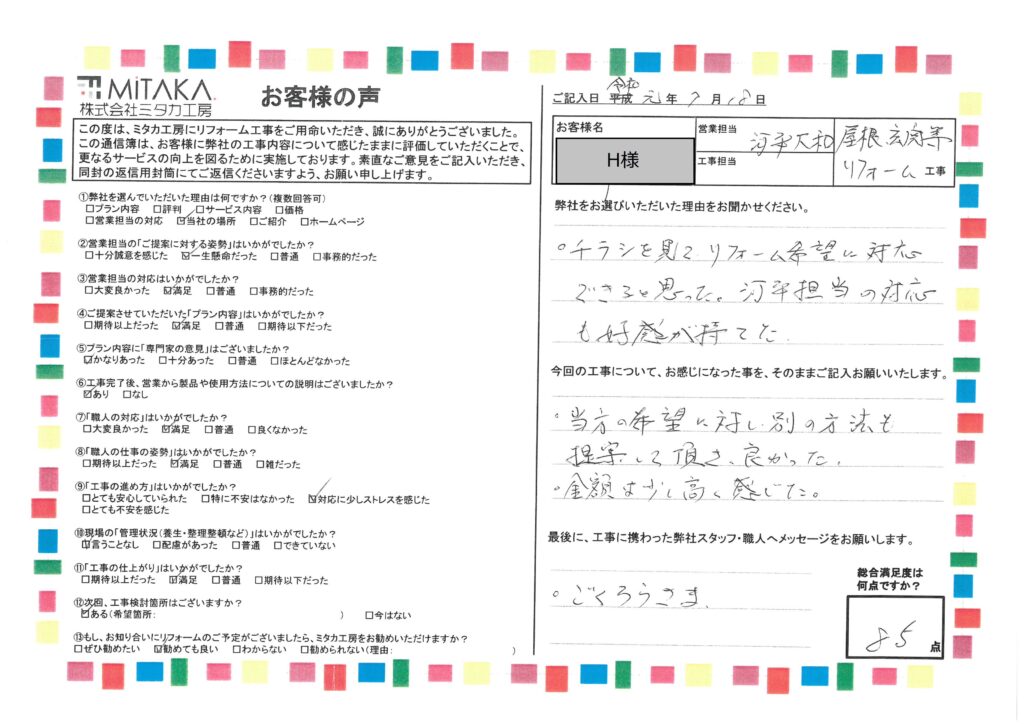 MiTAKA.
株式会社ミタカ工房
お客様の声
この度は、ミタカ工房にリフォーム工事をご用命いただき、誠にありがとうございました。
この通信簿は、お客様に弊社の工事内容について感じたままに評価していただくことで、
更なるサービスの向上を図るために実施しております。素直なご意見をご記入いただき、
同封の返信用封筒にてご返信くださいますよう、お願い申し上げます。
①弊社を選んでいただいた理由は何ですか?(複数回答可)
□プラン内容 □評判 □サービス内容 □価格
□営業担当の対応 ☑当社の場所 □ご紹介 □ホームページ
②営業担当の「ご提案に対する姿勢」はいかがでしたか?
□十分誠意を感じた ☑一生懸命だった □普通 □事務的だった
③営業担当の対応はいかがでしたか?
□大変良かった ☑満足 □普通 □事務的だった
④ご提案させていただいた「プラン内容」はいかがでしたか?
□期待以上だった ☑満足 □普通 □期待以下だった
⑤プラン内容に「専門家の意見」はございましたか?
☑かなりあった □十分あった □普通 □ほとんどなかった
⑥工事完了後、営業から製品や使用方法についての説明はございましたか?
☑あり □なし
⑦「職人の対応」はいかがでしたか?
□大変良かった ☑満足 □普通 □良くなかった
⑧「職人の仕事の姿勢」はいかがでしたか?
□期待以上だった ☑満足 □普通 □雑だった
⑨「工事の進め方」はいかがでしたか?
□とても安心していられた □特に不安はなかった ☑対応に少しストレスを感じた
□とても不安を感じた
⑩現場の「管理状況(養生・整理整頓など)」はいかがでしたか?
☑言うことなし □配慮があった □普通 □できていない
⑪「工事の仕上がり」はいかがでしたか?
□期待以上だった ☑満足 □普通 □期待以下だった
⑫次回、工事検討箇所はございますか?
☑ある(希望箇所: ) □今はない
⑬もし、お知り合いにリフォームのご予定がございましたら、ミタカ工房をお勧めいただけますか?
□ぜひ勧めたい ☑勧めても良い □わからない □勧められない(理由: )
令和
ご記入日 平成 元 年 9 月 18 日
お客様名
H様
営業担当 河平大和
工事担当
屋根玄関等
リフォーム 工事
弊社をお選びいただいた理由をお聞かせください。
○チラシを見てリフォーム希望に対応
できると思った。河平担当の対応
も好感が持てた.
今回の工事について、お感じになった事を、そのままご記入お願いいたします。
・当方の希望に対し別の方法も
提案して頂き、良かった.
・金額は少し高く感じた。
最後に、工事に携わった弊社スタッフ・職人へメッセージをお願いします。
○ごくろうさま.
総合満足度は
何点ですか?
85 点